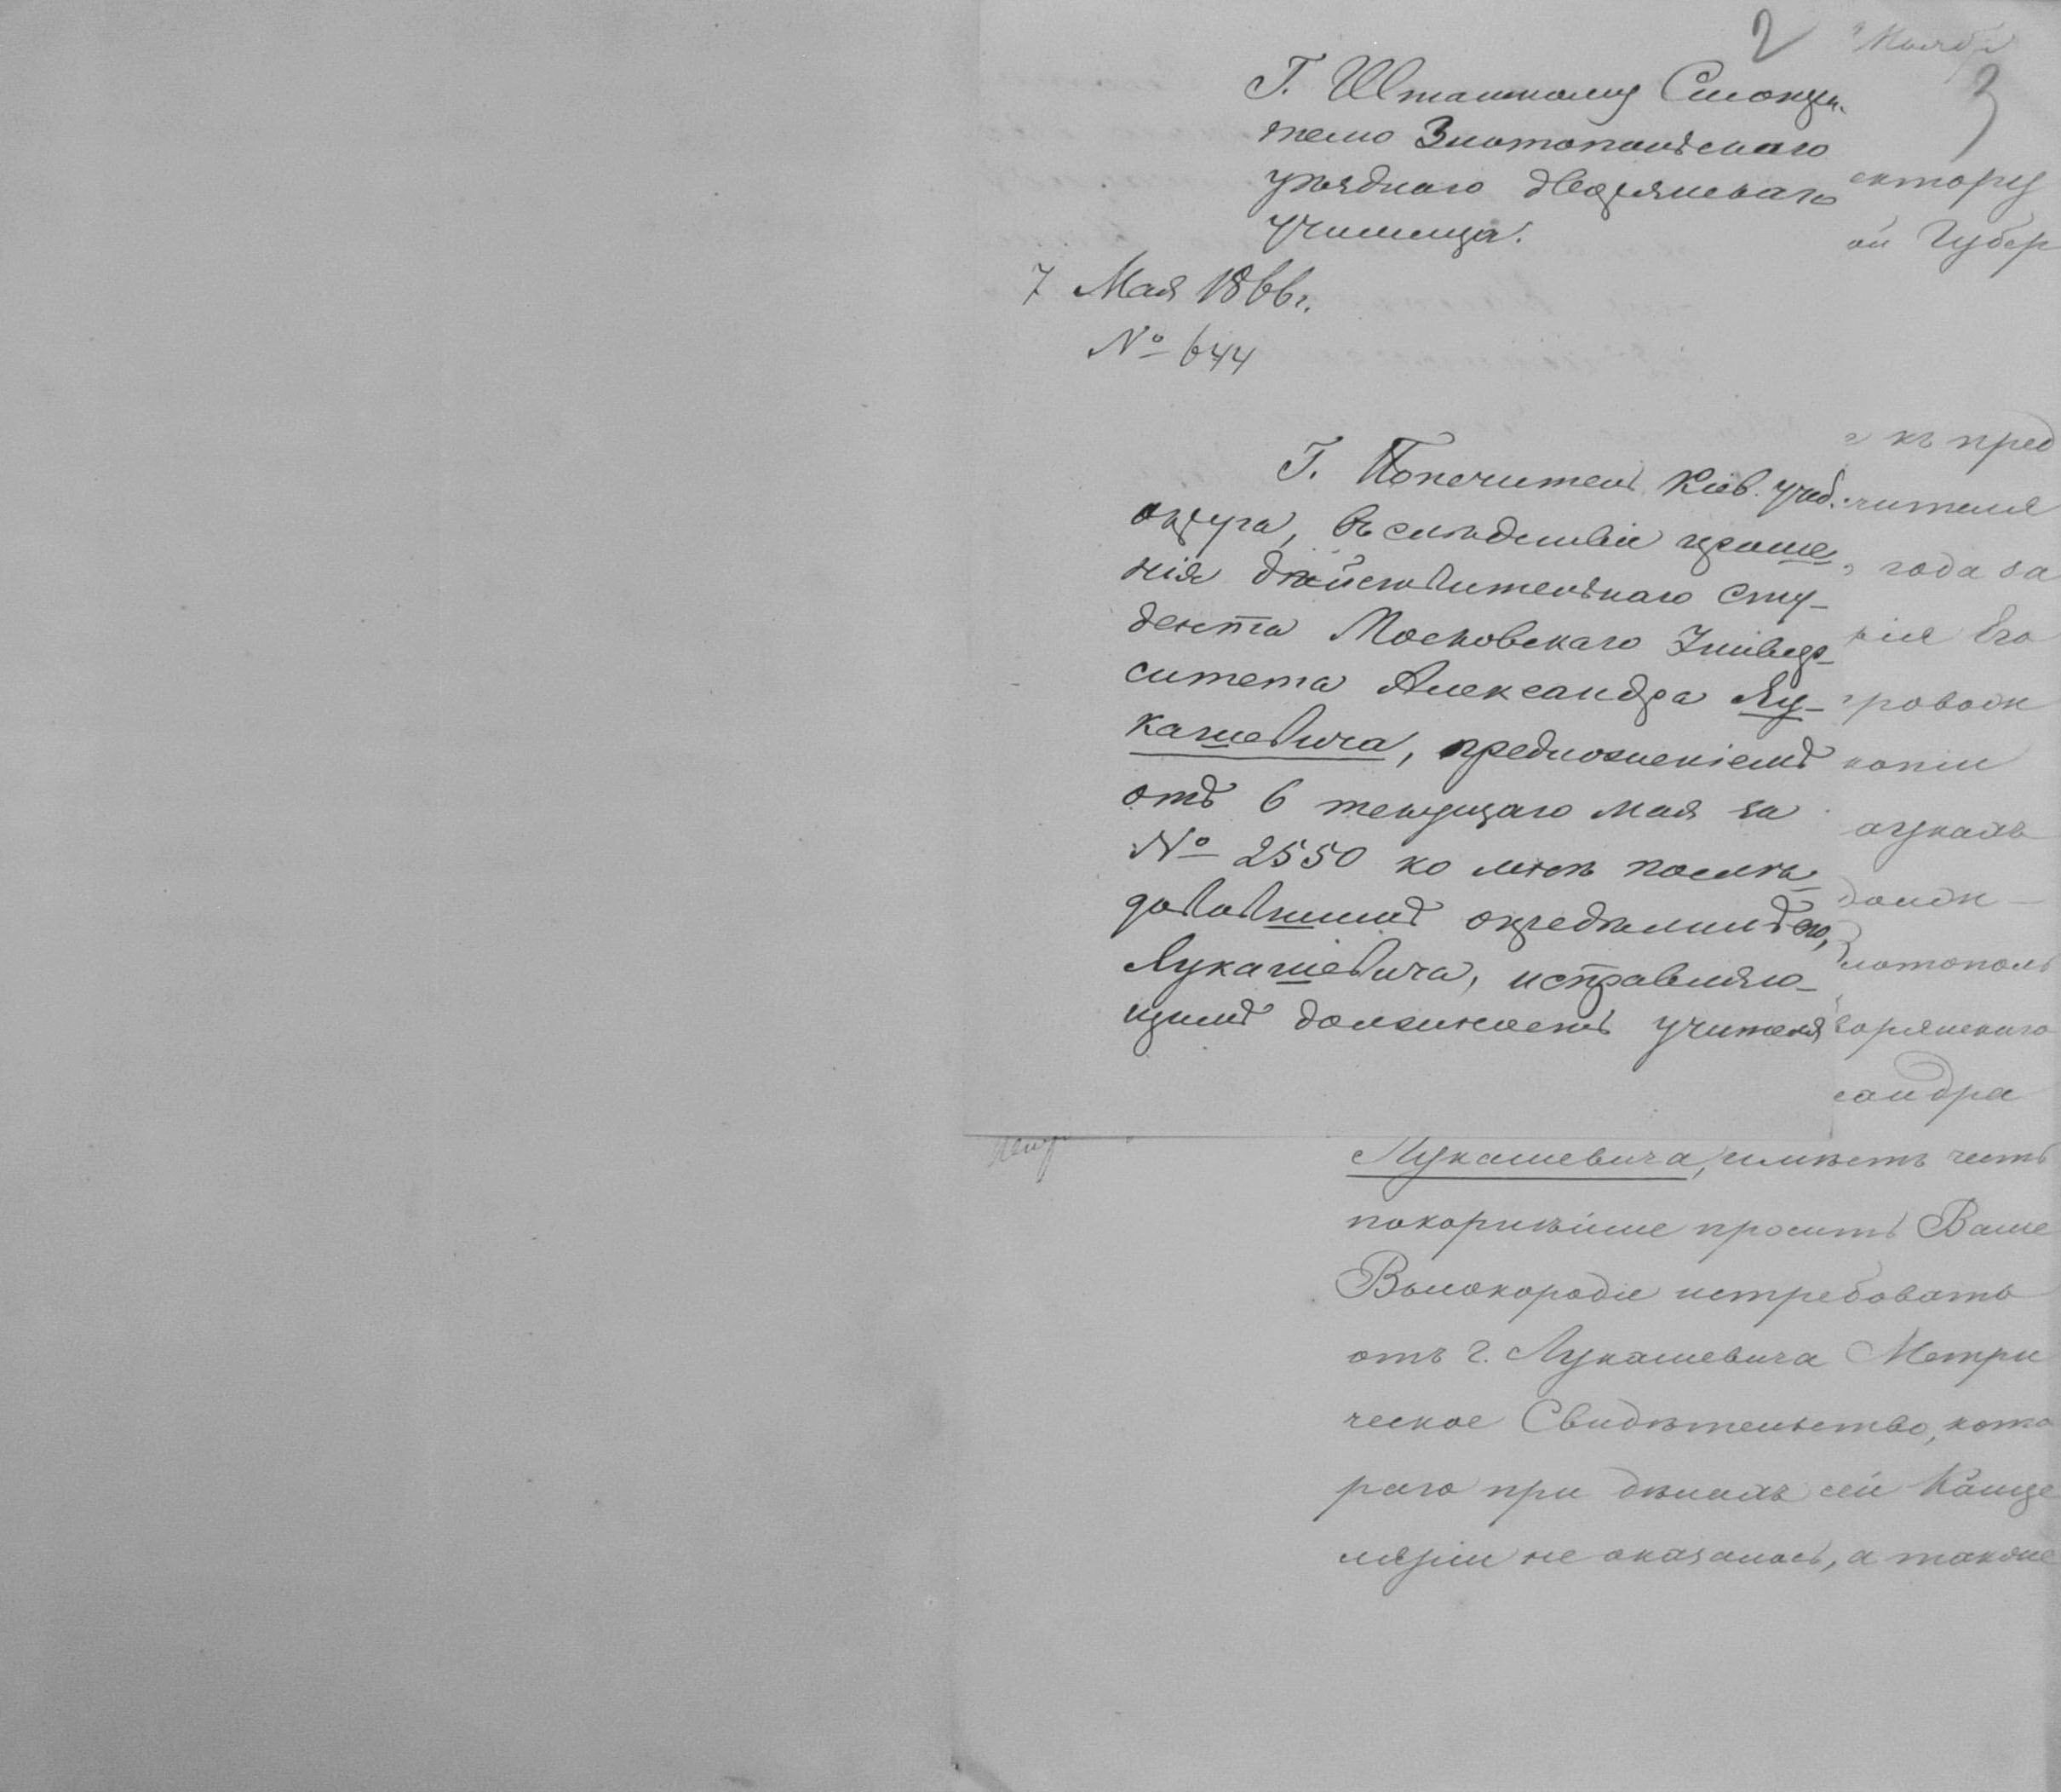 2
3
Г. Штатному Смотри-
телю Златопольскаго
уѣзднаго дворянскаго
училища.
7 Мая 1866 г.
№ 644
Г. Попечитель Кіев. учеб.
округа, въ слѣдствіе проше-
нія дѣйствительнаго сту-
дента Московскаго Универ-
ситета Александра Лу-
кашевича, предложеніемъ
отъ 6 текущаго мая за
№ 2550 ко мнѣ послѣ-
довавшимъ опредѣлилъ его,
Лукашевича, исправляю-
щимъ должность учителя
ектору
ой Губер
къ пред
чителя
года за
рія Его
проводи
копіи
лотополь
ворянскаго
сандра
Лукашевича, имѣетъ честь
покорнѣйше просить Ваше
Высокородіе истребовать
отъ г. Лукашевича Метри
ческое Свидѣтельство, кото
раго при дѣлахъ сей Канце
ляріи не оказалось, а также